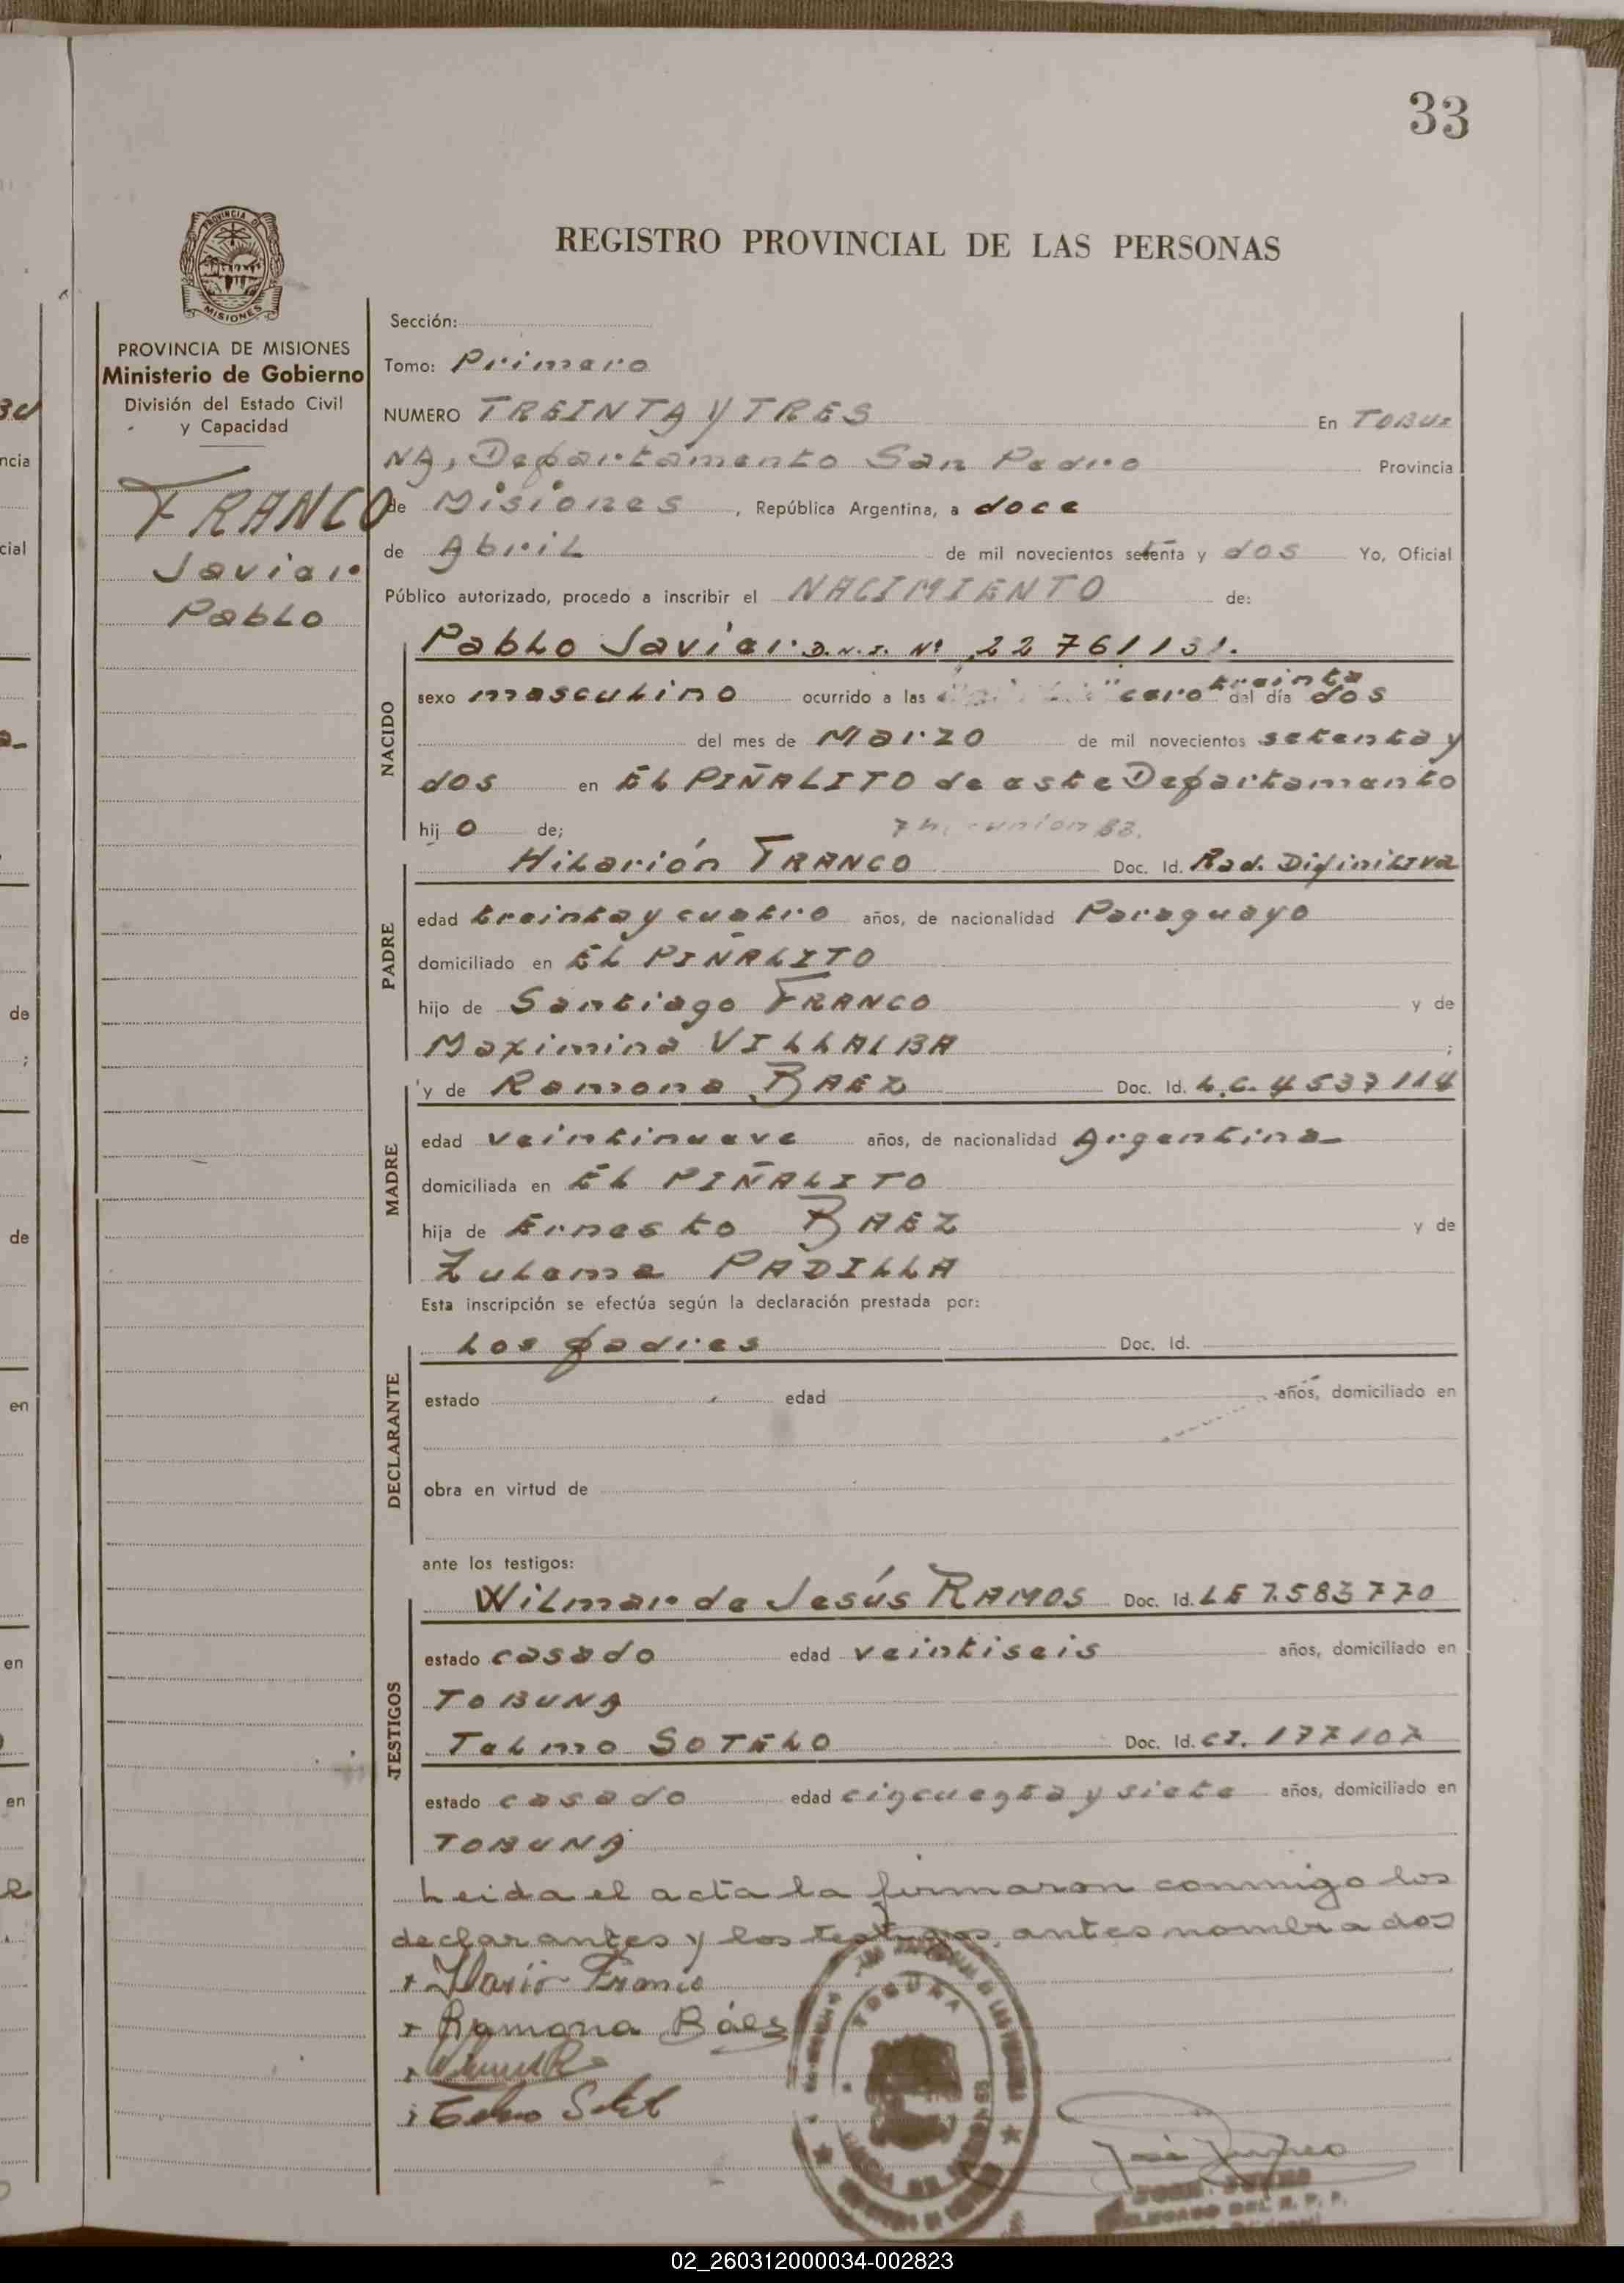 33
PROVINCIA DE
MISIONES
REGISTRO PROVINCIAL DE LAS PERSONAS
PROVINCIA DE MISIONES
Ministerio de Gobierno
División del Estado Civil
y Capacidad
FRANCO
Javier
Pablo
Sección:
Tomo: Primero
NUMERO TREINTA Y TRES En TOBU=
NA, Departamento San Pedro Provincia
de Misiones, República Argentina, a doce
de Abril de mil novecientos setenta y dos Yo, Oficial
Público autorizado, procedo a inscribir el NACIMIENTO de:
NACIDO
Pablo Javier D.N.I. Nº 22761131.
sexo masculino ocurrido a las cero treinta del día dos
del mes de Marzo de mil novecientos setenta y
dos en EL PIÑALITO de este Departamento
hij o de;
PADRE
Hilarión FRANCO Doc. Id. Rad. Difinitiva
edad treinta y cuatro años, de nacionalidad Paraguayo
domiciliado en EL PIÑALITO
hijo de Santiago FRANCO y de
Maximina VILLALBA ;
MADRE
y de Ramona BAEZ Doc. Id. L.C. 4537114
edad veintinueve años, de nacionalidad Argentina
domiciliada en EL PIÑALITO
hija de Ernesto BAEZ y de
Zulema PADILLA
Esta inscripción se efectúa según la declaración prestada por:
DECLARANTE
Los padres Doc. Id.
estado edad años, domiciliado en
obra en virtud de
ante los testigos:
TESTIGOS
Wilmar de Jesús RAMOS Doc. Id. LE 7.583770
estado casado edad veintiseis años, domiciliado en
TOBUNA
Telmo SOTELO Doc. Id. CI. 177107
estado casado edad cincuenta y siete años, domiciliado en
TOBUNA
Leida el acta la firmaron conmigo los
declarantes y los testigos antes nombrados
Ilario Franco
Ramona Báes
TOBUNA
02_260312000034-002823